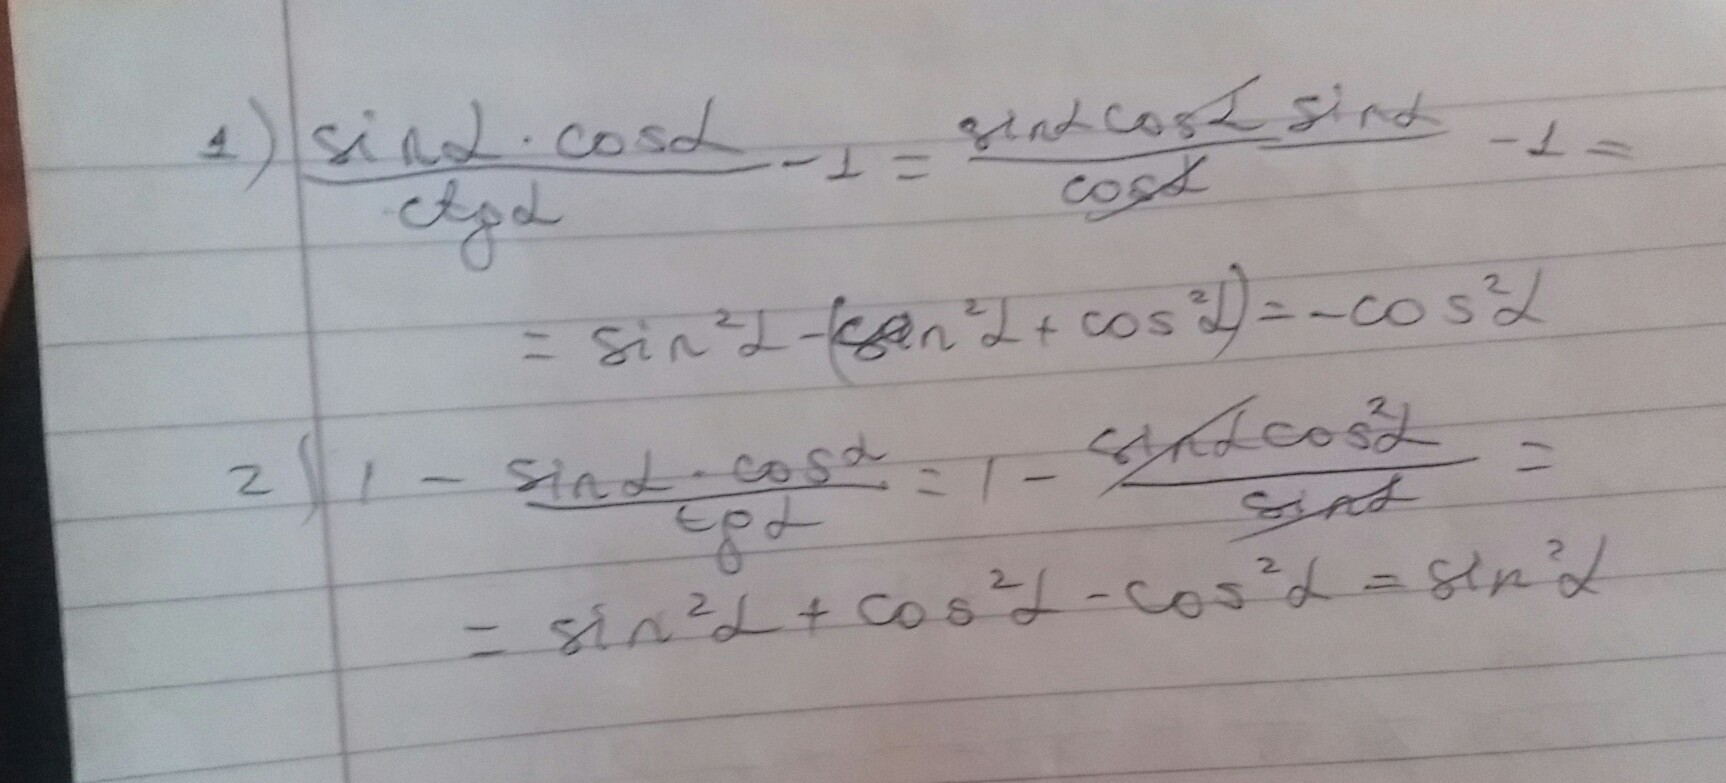 1) (sinα · cosα)/(ctgα) - 1 = (sinα cosα sinα)/(cosα) - 1 =
= sin²α - (sin²α + cos²α) = - cos²α
2) 1 - (sinα · cosα)/(tgα) = 1 - (sinα cos²α)/(sinα) =
= sin²α + cos²α - cos²α = sin²α